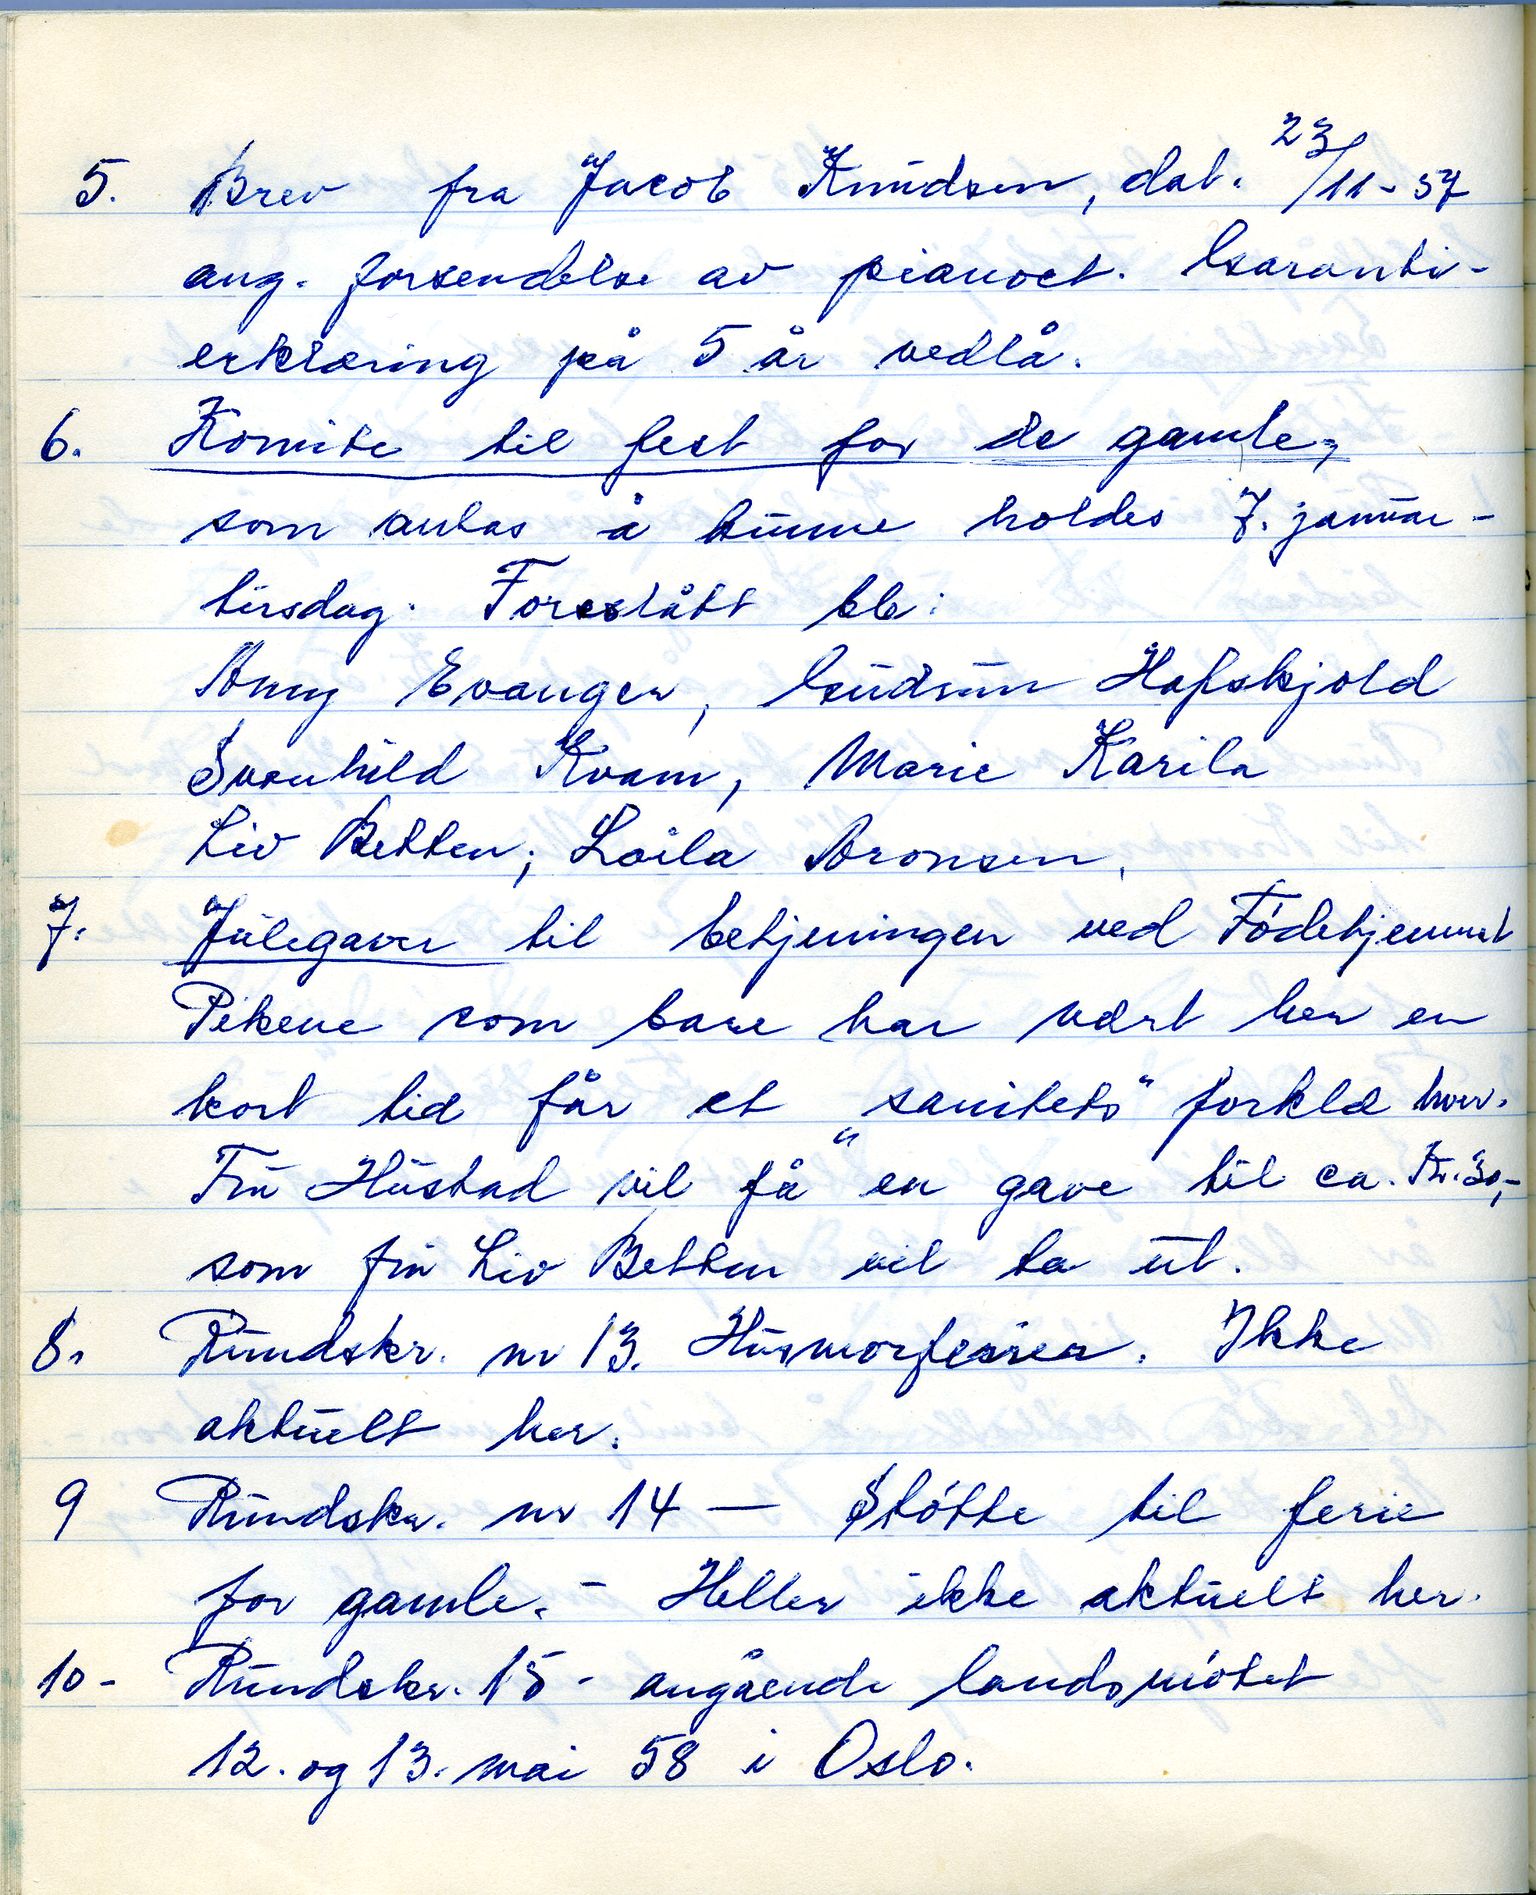 5. Brev fra Jacob Knudsen, dat. 23/11-57
ang. forsendelse av pianoet. Garanti-
erklæring på 5 år vedlå.
6. Komite til fest for de gamle,
som antas å kunne holdes 7. januar -
tirsdag. Foreslått ble:
Anny Evanger, Gudrun Hafskjold
Svanhild Kvam, Marie Karila
Liv Betten; Laila Aronsen.
7. Julegaver til betjeningen ved Fødehjemmet
Pikene som bare har vært her en
kort tid får et "sanitets" forklæ hver.
Fru Hustad vil få en gave til ca. Kr. 30,-
som fru Liv Betten vil ta ut.
8. Rundskr. nr 13. Husmorferier. Ikke
aktuelt her.
9 Rundskr. nr 14 — Støtte til ferie
for gamle. - Heller ikke aktuelt her.
10- Rundskr. 15 - angående landsmøtet
12. og 13. mai 58 i Oslo.